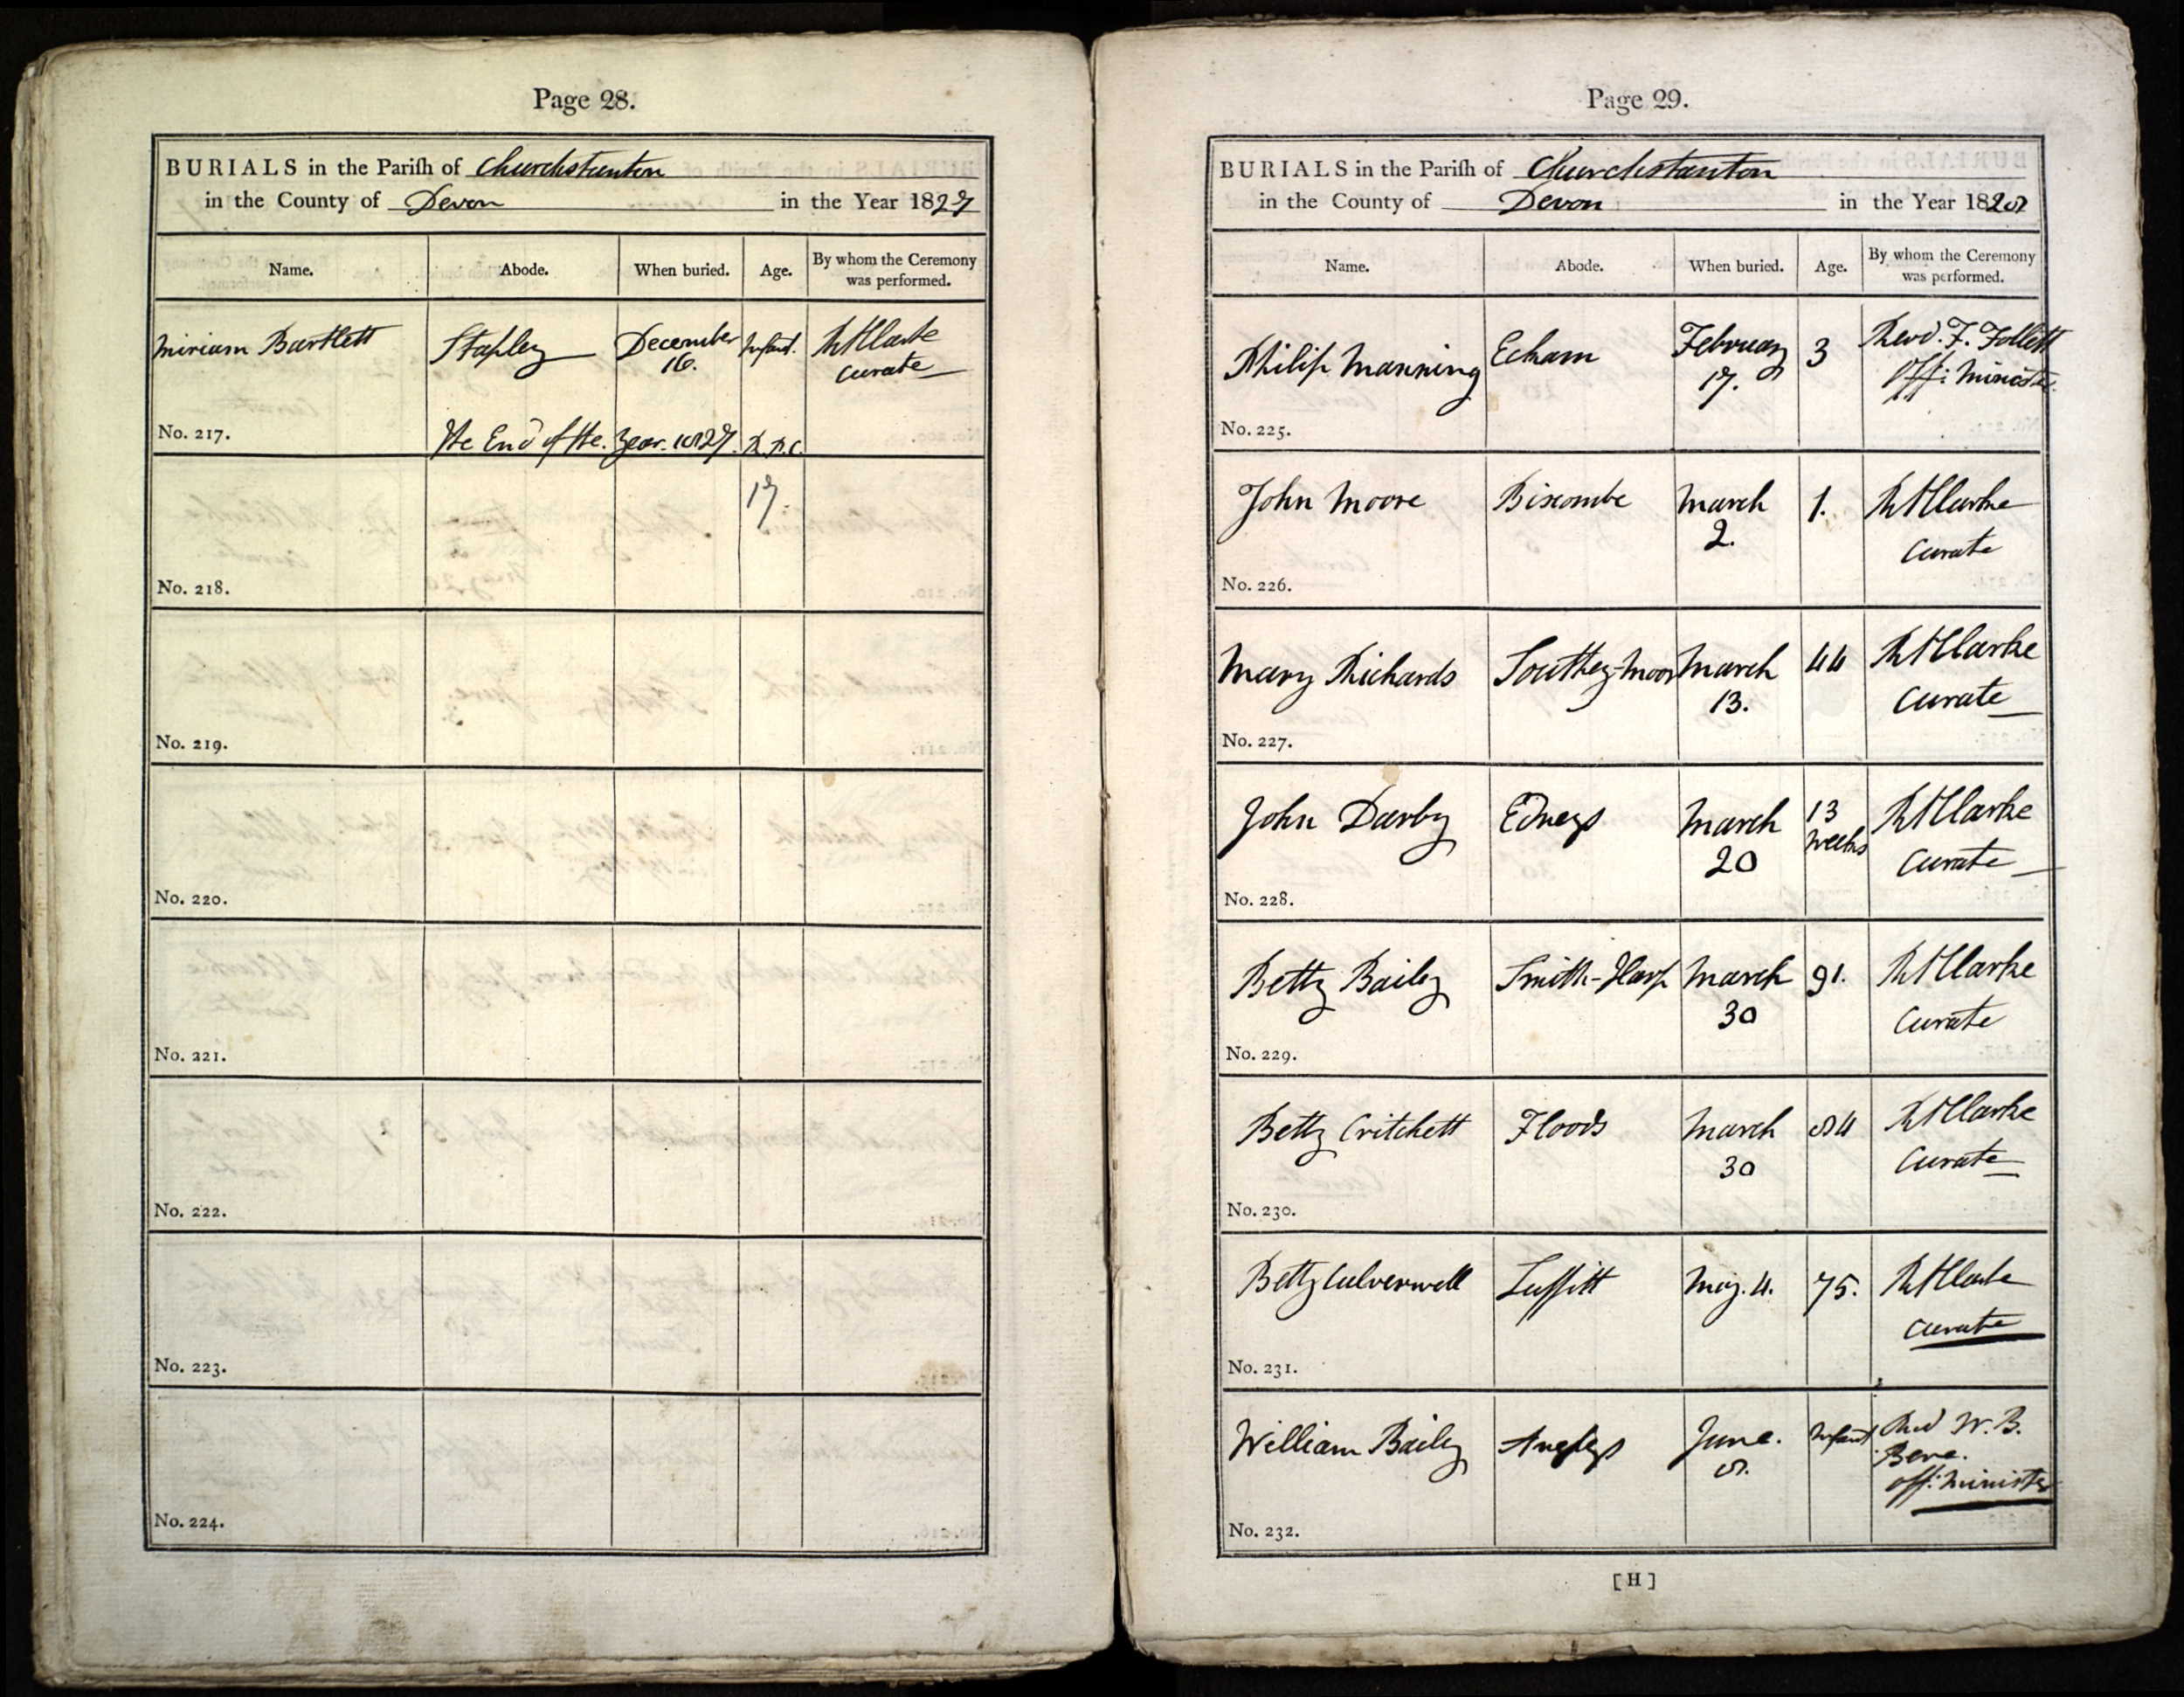 Page 28.
BURIALS in the Parish of Churchstanton
in the County of Devon in the Year 1827
Name. Abode. When buried. Age. By whom the Ceremony was performed.
Miriam Bartlett Stapley December 16. Infant. RHClarke Curate
No. 217. The End of the Year. 1827.
17.
No. 218.
No. 219.
No. 220.
No. 221.
No. 222.
No. 223.
No. 224.
Page 29.
BURIALS in the Parish of Churchstanton
in the County of Devon in the Year 1828
Name. Abode. When buried. Age. By whom the Ceremony was performed.
Philip Manning Echam February 17. 3 Revd. F. Follett Off: Minister.
No. 225.
John Moore Biscombe March 2. 1. RHClarke Curate
No. 226.
Mary Richards Southey-Moor March 13. 44 RHClarke Curate
No. 227.
John Darby Edneys March 20 13 weeks RHClarke Curate
No. 228.
Betty Bailey Smith-Harp March 30 91. RHClarke Curate
No. 229.
Betty Critchett Floods March 30 84 RHClarke Curate
No. 230.
Betty Culverwell Luffitt May. 4. 75. RHClarke Curate
No. 231.
William Bailey June. 8. Infant Revd W. B. Bere. Off: Minister
No. 232.
[H]